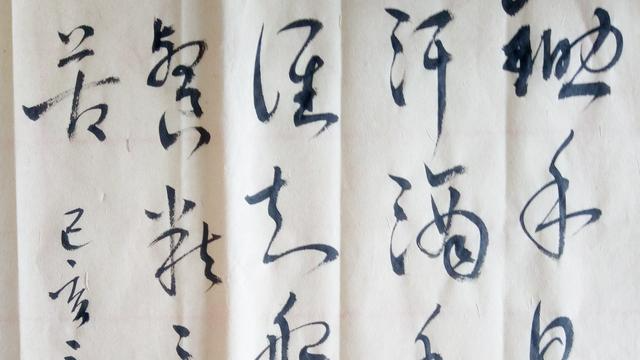 鋤禾日
汗滴禾
谁知盤
餐粒
苦 己亥